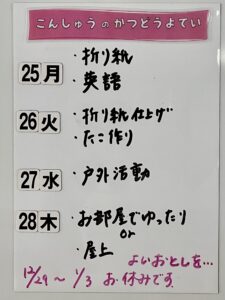 こんしゅうのかつどうよてい
25月 ・折り紙
・英語
26火 ・折り紙仕上げ
・たこ作り
27水 ・戸外活動
28木 ・お部屋でゆったり
or
・屋上
よいおとしを…
12/29～1/3 お休みです。